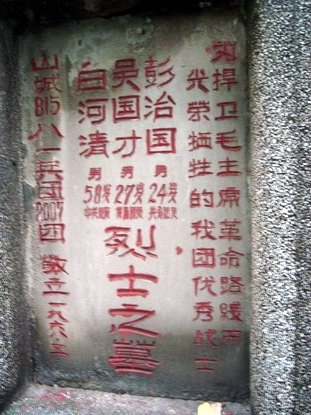 为捍卫毛主席革命路线而
光荣牺牲的我团优秀战士
彭治国 男 24岁
吴国才 男 27岁
白河清 男 58岁
烈士之墓
山城815八一兵团2007团 敬立一九六八.五